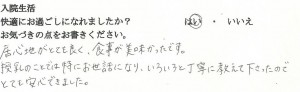 入院生活
快適にお過ごしになれましたか? はい ・ いいえ
お気づきの点をお書きください。
居心地がとても良く、食事が美味かったです。
授乳のことでは特にお世話になり、いろいろと丁寧に教えて下さったので
とても安心できました。